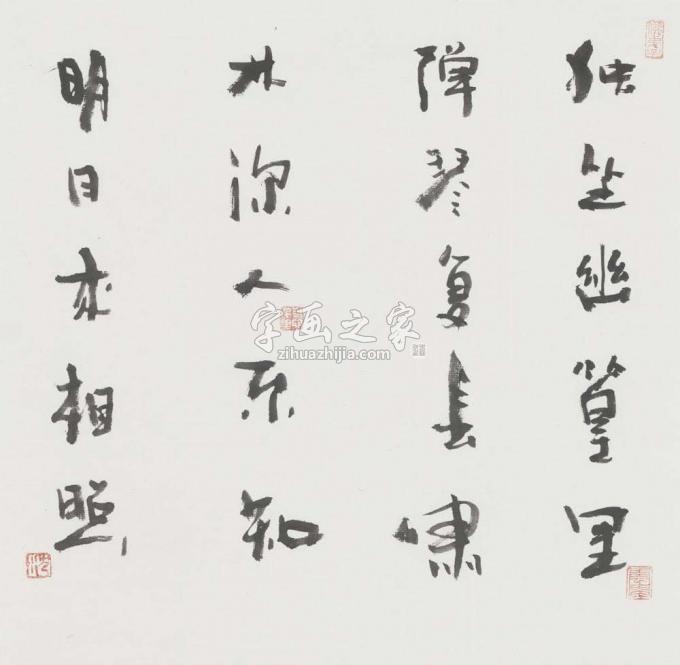 独坐幽篁里
弹琴复長嘯
林深人不知
明日来相照
字画之家
zihuazhijia.com